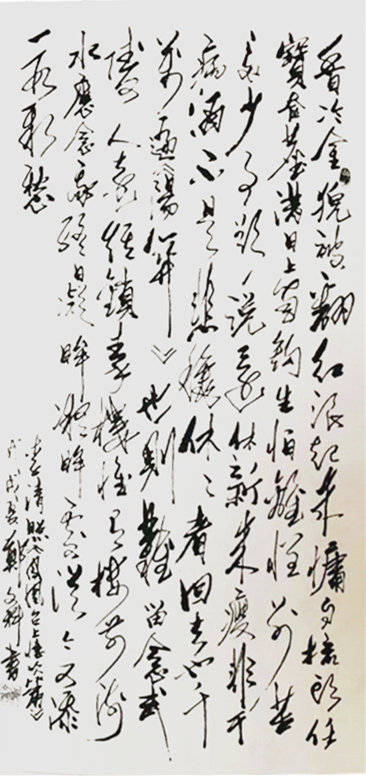 香冷金猊被翻红浪起来慵自梳头任
寶奩塵满日上帘鈎生怕離怀别苦
多少事欲说还休新来瘦非干
病酒不是悲秋休々者回去也千
万遍陽関也則難留念武
陵人远烟鎖秦樓惟有楼前流
水應念我终日凝眸凝眸处從今又添
一段新愁
李清照凤凰台上憶吹箫
戊戌夏鄭文科書